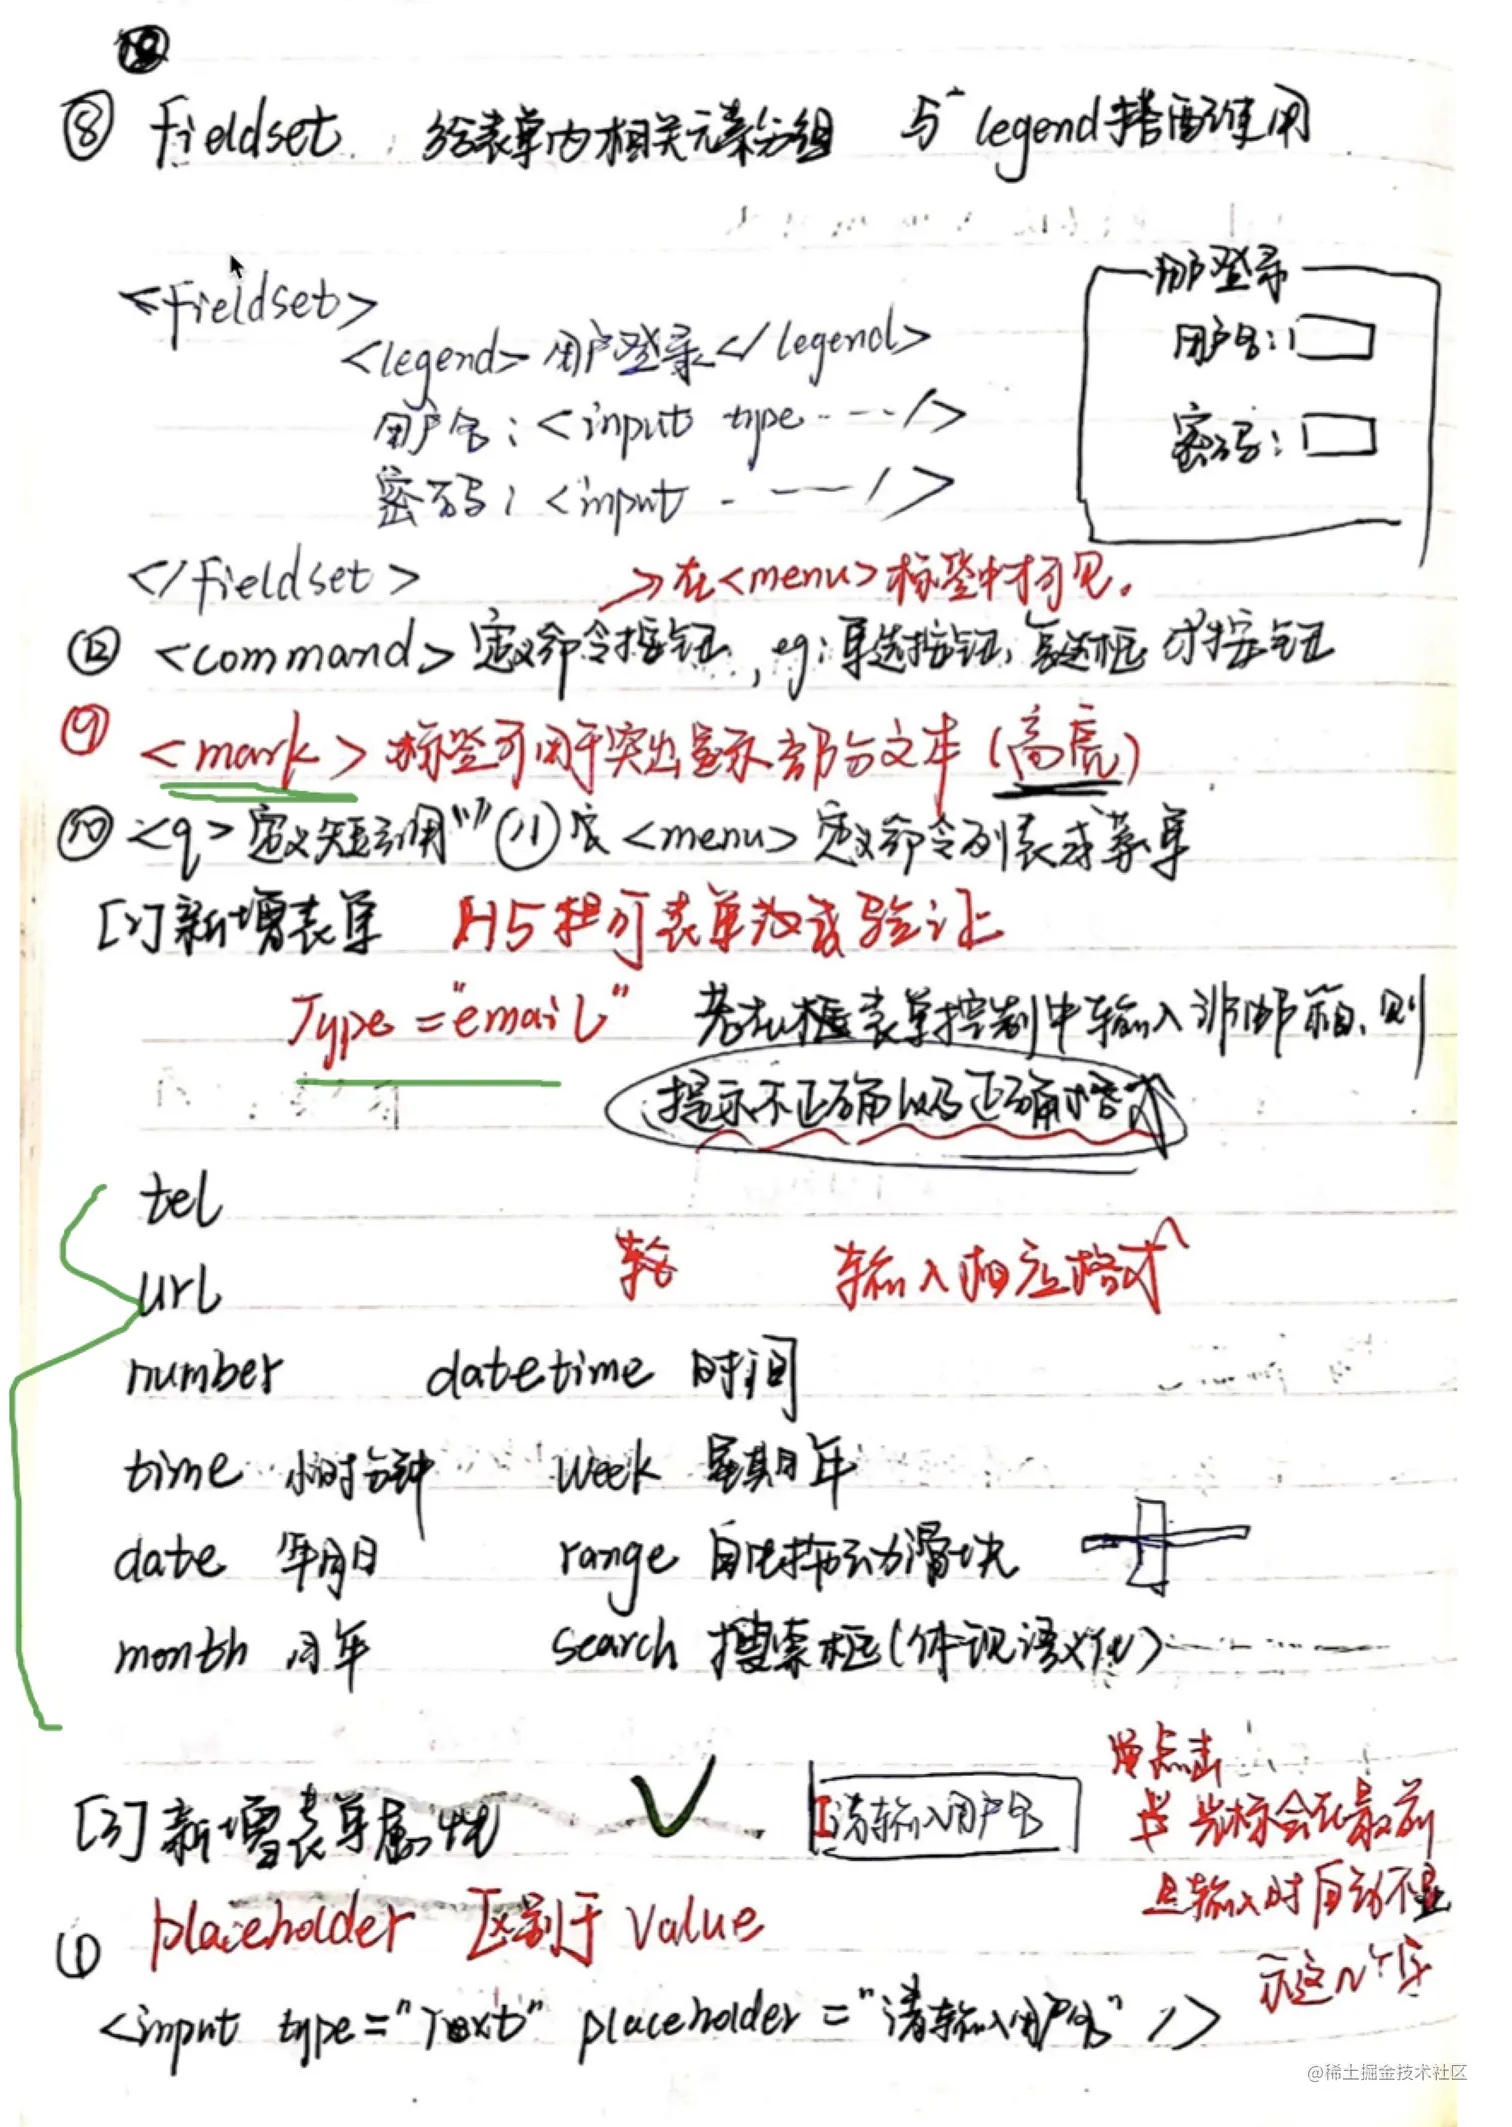 ⑧ Fieldset 给表单内相关元素分组 与 legend搭配使用
<Fieldset>
<legend> 用户登录 </legend>
用户名: <input type ---- />
密码: <input - --- />
</Fieldset>
用户登录
用户名:
密码:
→在<menu>标签中才可见.
⑫ <command> 定义命令按钮, eg: 单选按钮, 复选框 or 按钮
⑨ <mark> 标签可用于突出显示部分文本 (高亮)
⑩ <q> 定义短引用"" ⑪ <menu> 定义命令列表或菜单
[2]新增表单 H5 表单 验证
Type="email" 若在框表单控制中输入非邮箱, 则
提示不正确以及正确格式
tel
url 输入相应格式
number datetime 时间
time 小时分钟 week 星期年
date 年月日 range 自由拖动滑块
month 月年 search 搜索框(体现语义化)
[3]新增表单属性 请输入用户名
点击
光标会在最前
且输入时自动不显
示这几个字
① placeholder 区别于 value
<input type="Text" placeholder="请输入用户名" />
@稀土掘金技术社区